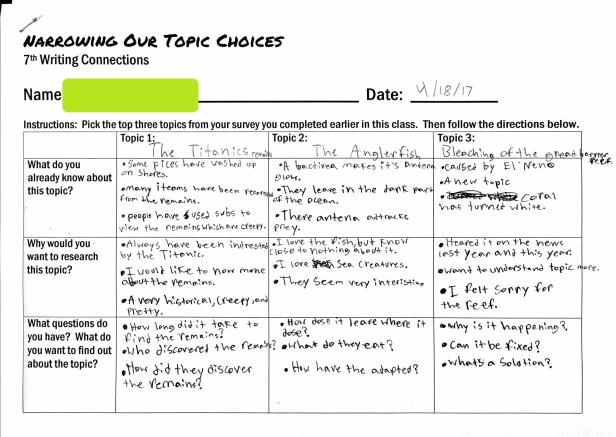 NARROWING OUR TOPIC CHOICES
7th Writing Connections
Name
Date: 4/18/17
Instructions: Pick the top three topics from your survey you completed earlier in this class. Then follow the directions below.
Topic 1:
The Titanics remains
Topic 2:
The Anglerfish
Topic 3:
Bleaching of the great barrier
reef.
What do you
already know about
this topic?
• Some pices have washed up
on shores.
• many iteams have been recovered
from the remains.
• people have used subs to
view the remains which are creepy.
• A bactirea makes it's antena
glow.
• They leave in the dark part
of the ocean.
• There antena attracke
prey.
• Caused by El Neno
• A new topic
• Coral
has turned white.
Why would you
want to research
this topic?
• Always have been intrested
by the Titanic.
• I would like to now more
about the remains.
• A very historical, creepy, and
Pretty.
• I love the fish, but know
close to nothing about it.
• I love Sea creatures.
• They seem very interisting
• Heared it on the news
last year and this year.
• want to understand topic more.
• I felt sorry for
the reef.
What questions do
you have? What do
you want to find out
about the topic?
• How long did it take to
find the remains?
• Who discovered the remains?
• How did they discover
the remains?
• How dose it leave where it
dose?
• What do they eat?
• How have the adapted?
• Why is it happening?
• Can it be fixed?
• Whats a Solotion?